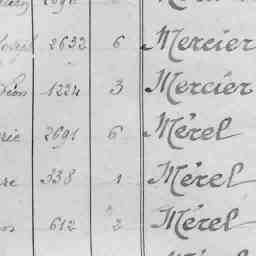 Joseph 2632 6 Mercier
Léon 1224 3 Mercier
rie 2691 6 Mérel
re 338 1 Mérel
612 2 Mérel